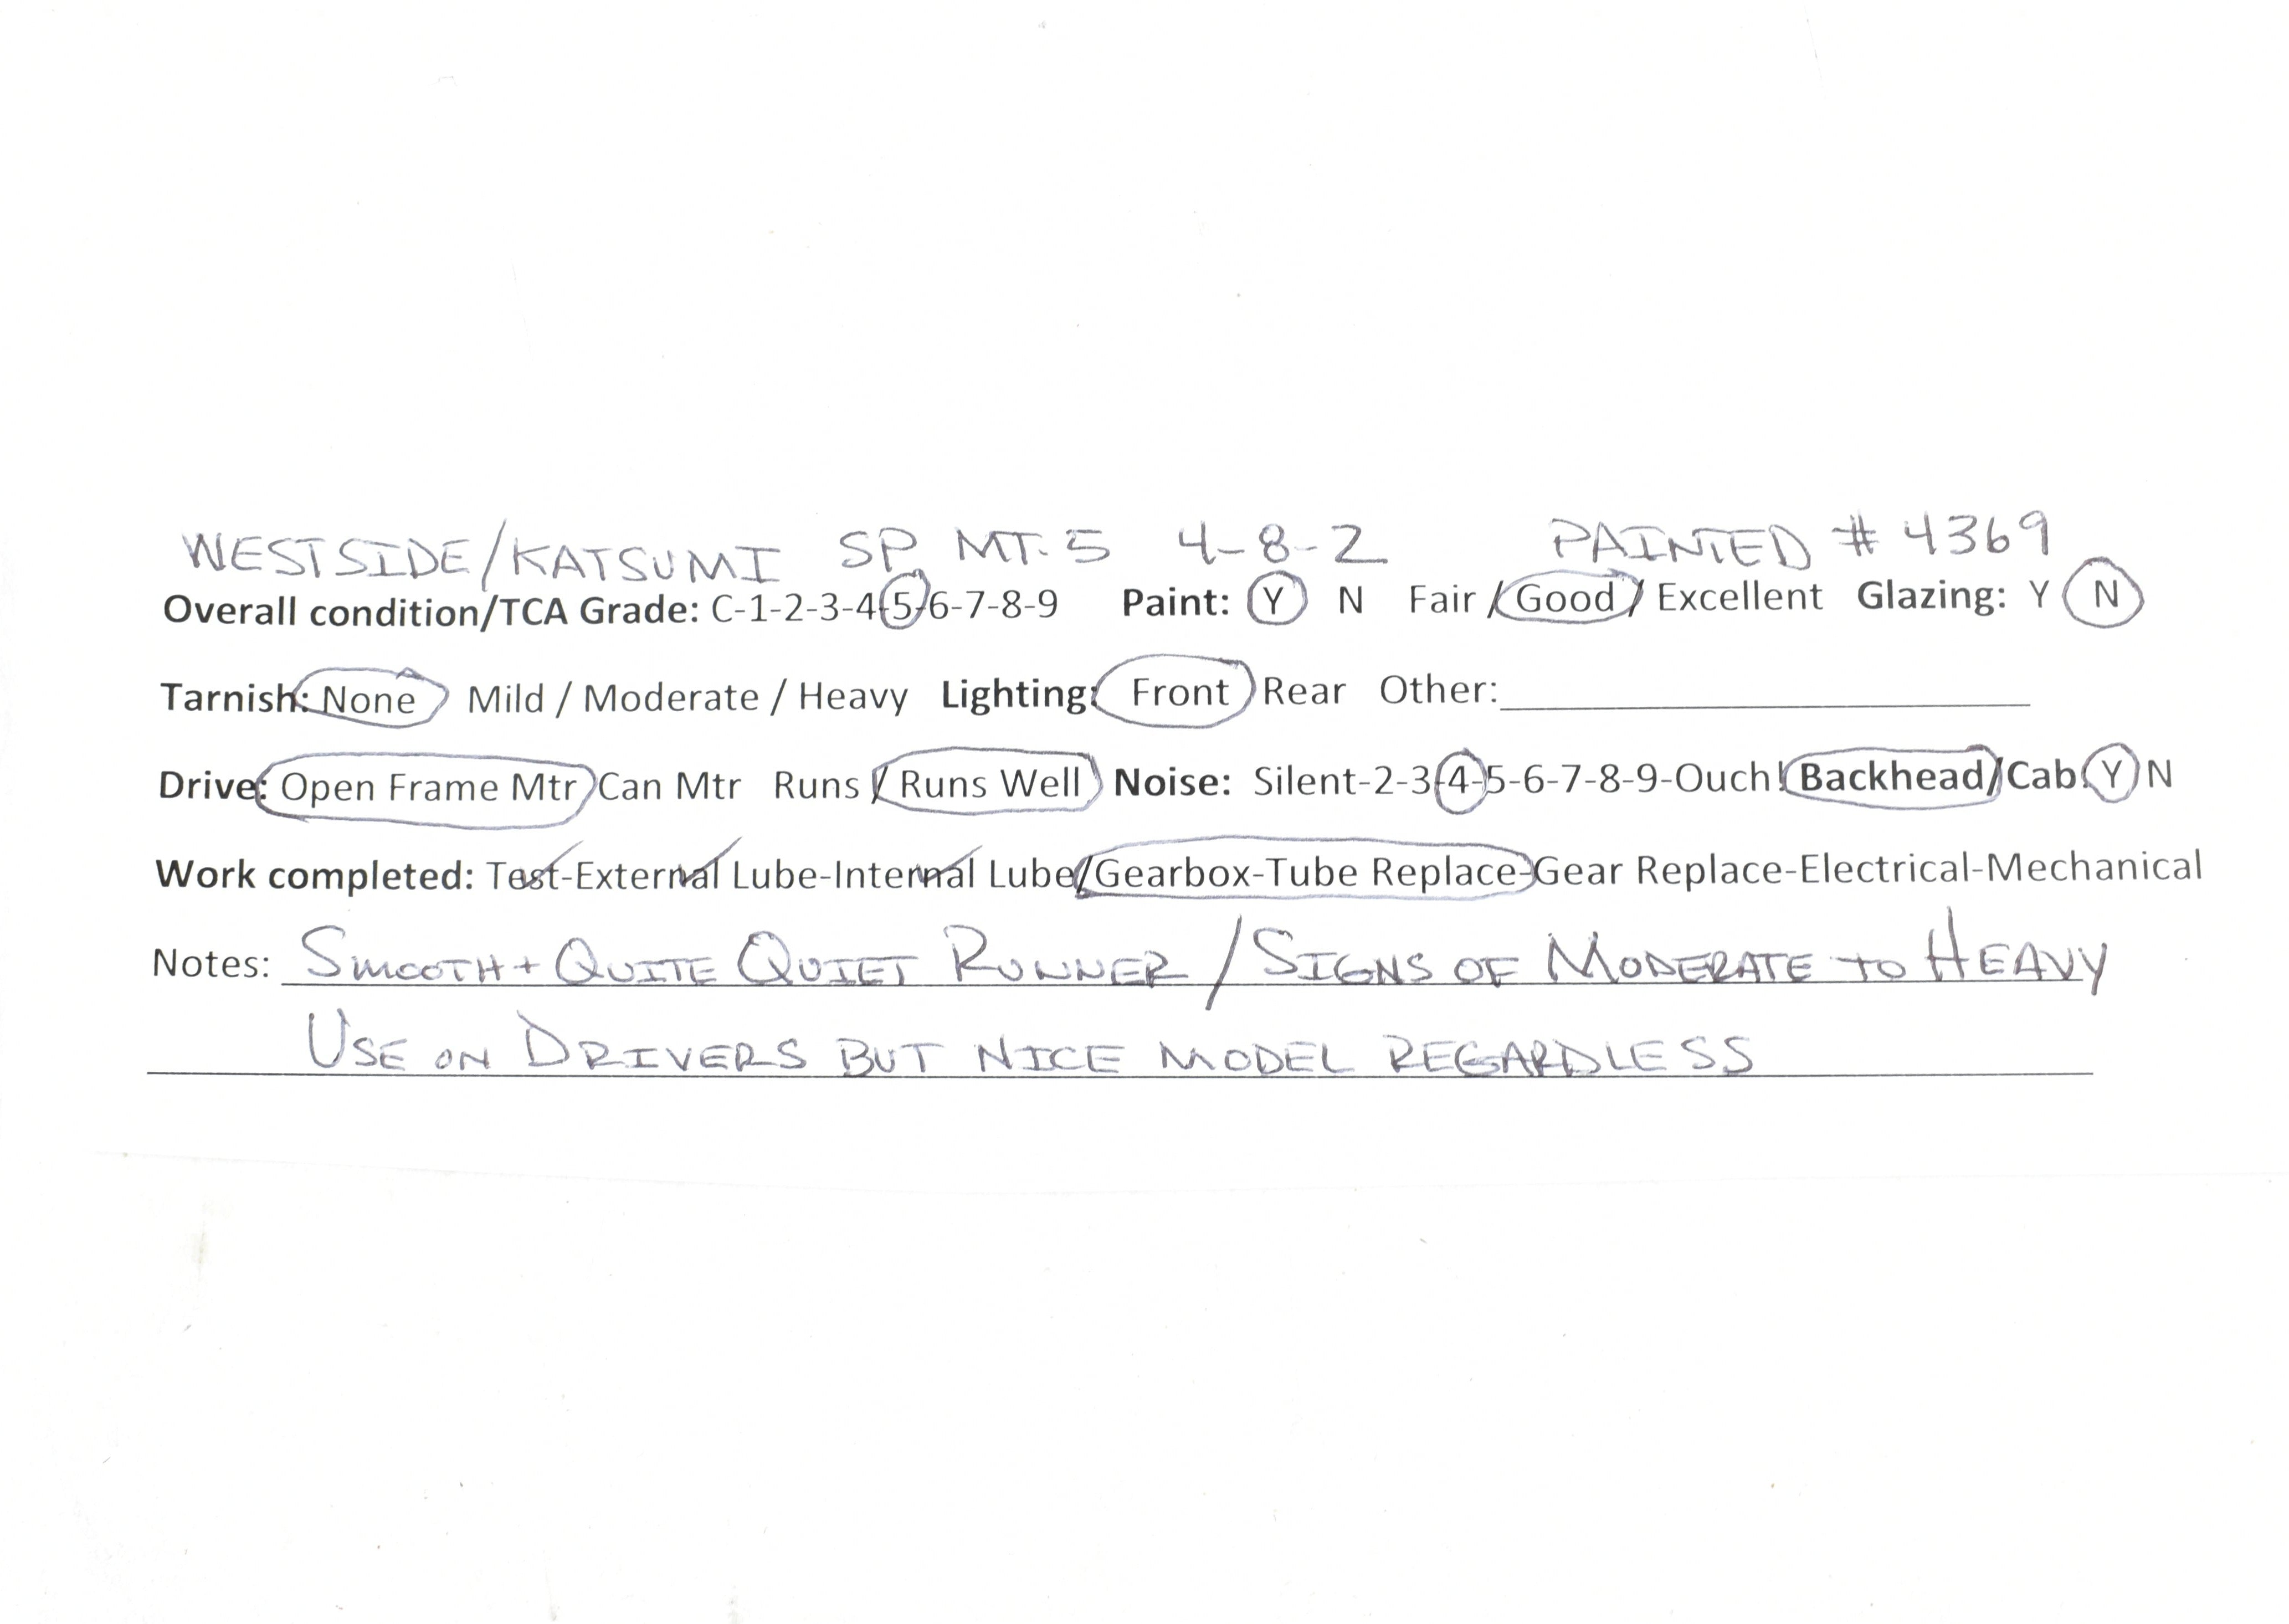 WESTSIDE/KATSUMI SP MT. 5 4-8-2 PAINTED # 4369
Overall condition/TCA Grade: C-1-2-3-4-5-6-7-8-9 Paint: Y N Fair / Good / Excellent Glazing: Y N
Tarnish: None Mild / Moderate / Heavy Lighting: Front Rear Other:
Drive: Open Frame Mtr Can Mtr Runs / Runs Well Noise: Silent-2-3-4-5-6-7-8-9-Ouch! Backhead/Cab: Y N
Work completed: Test-External Lube-Internal Lube/Gearbox-Tube Replace-Gear Replace-Electrical-Mechanical
Notes: SMOOTH + QUITE QUIET RUNNER / SIGNS OF MODERATE TO HEAVY
USE ON DRIVERS BUT NICE MODEL REGARDLESS